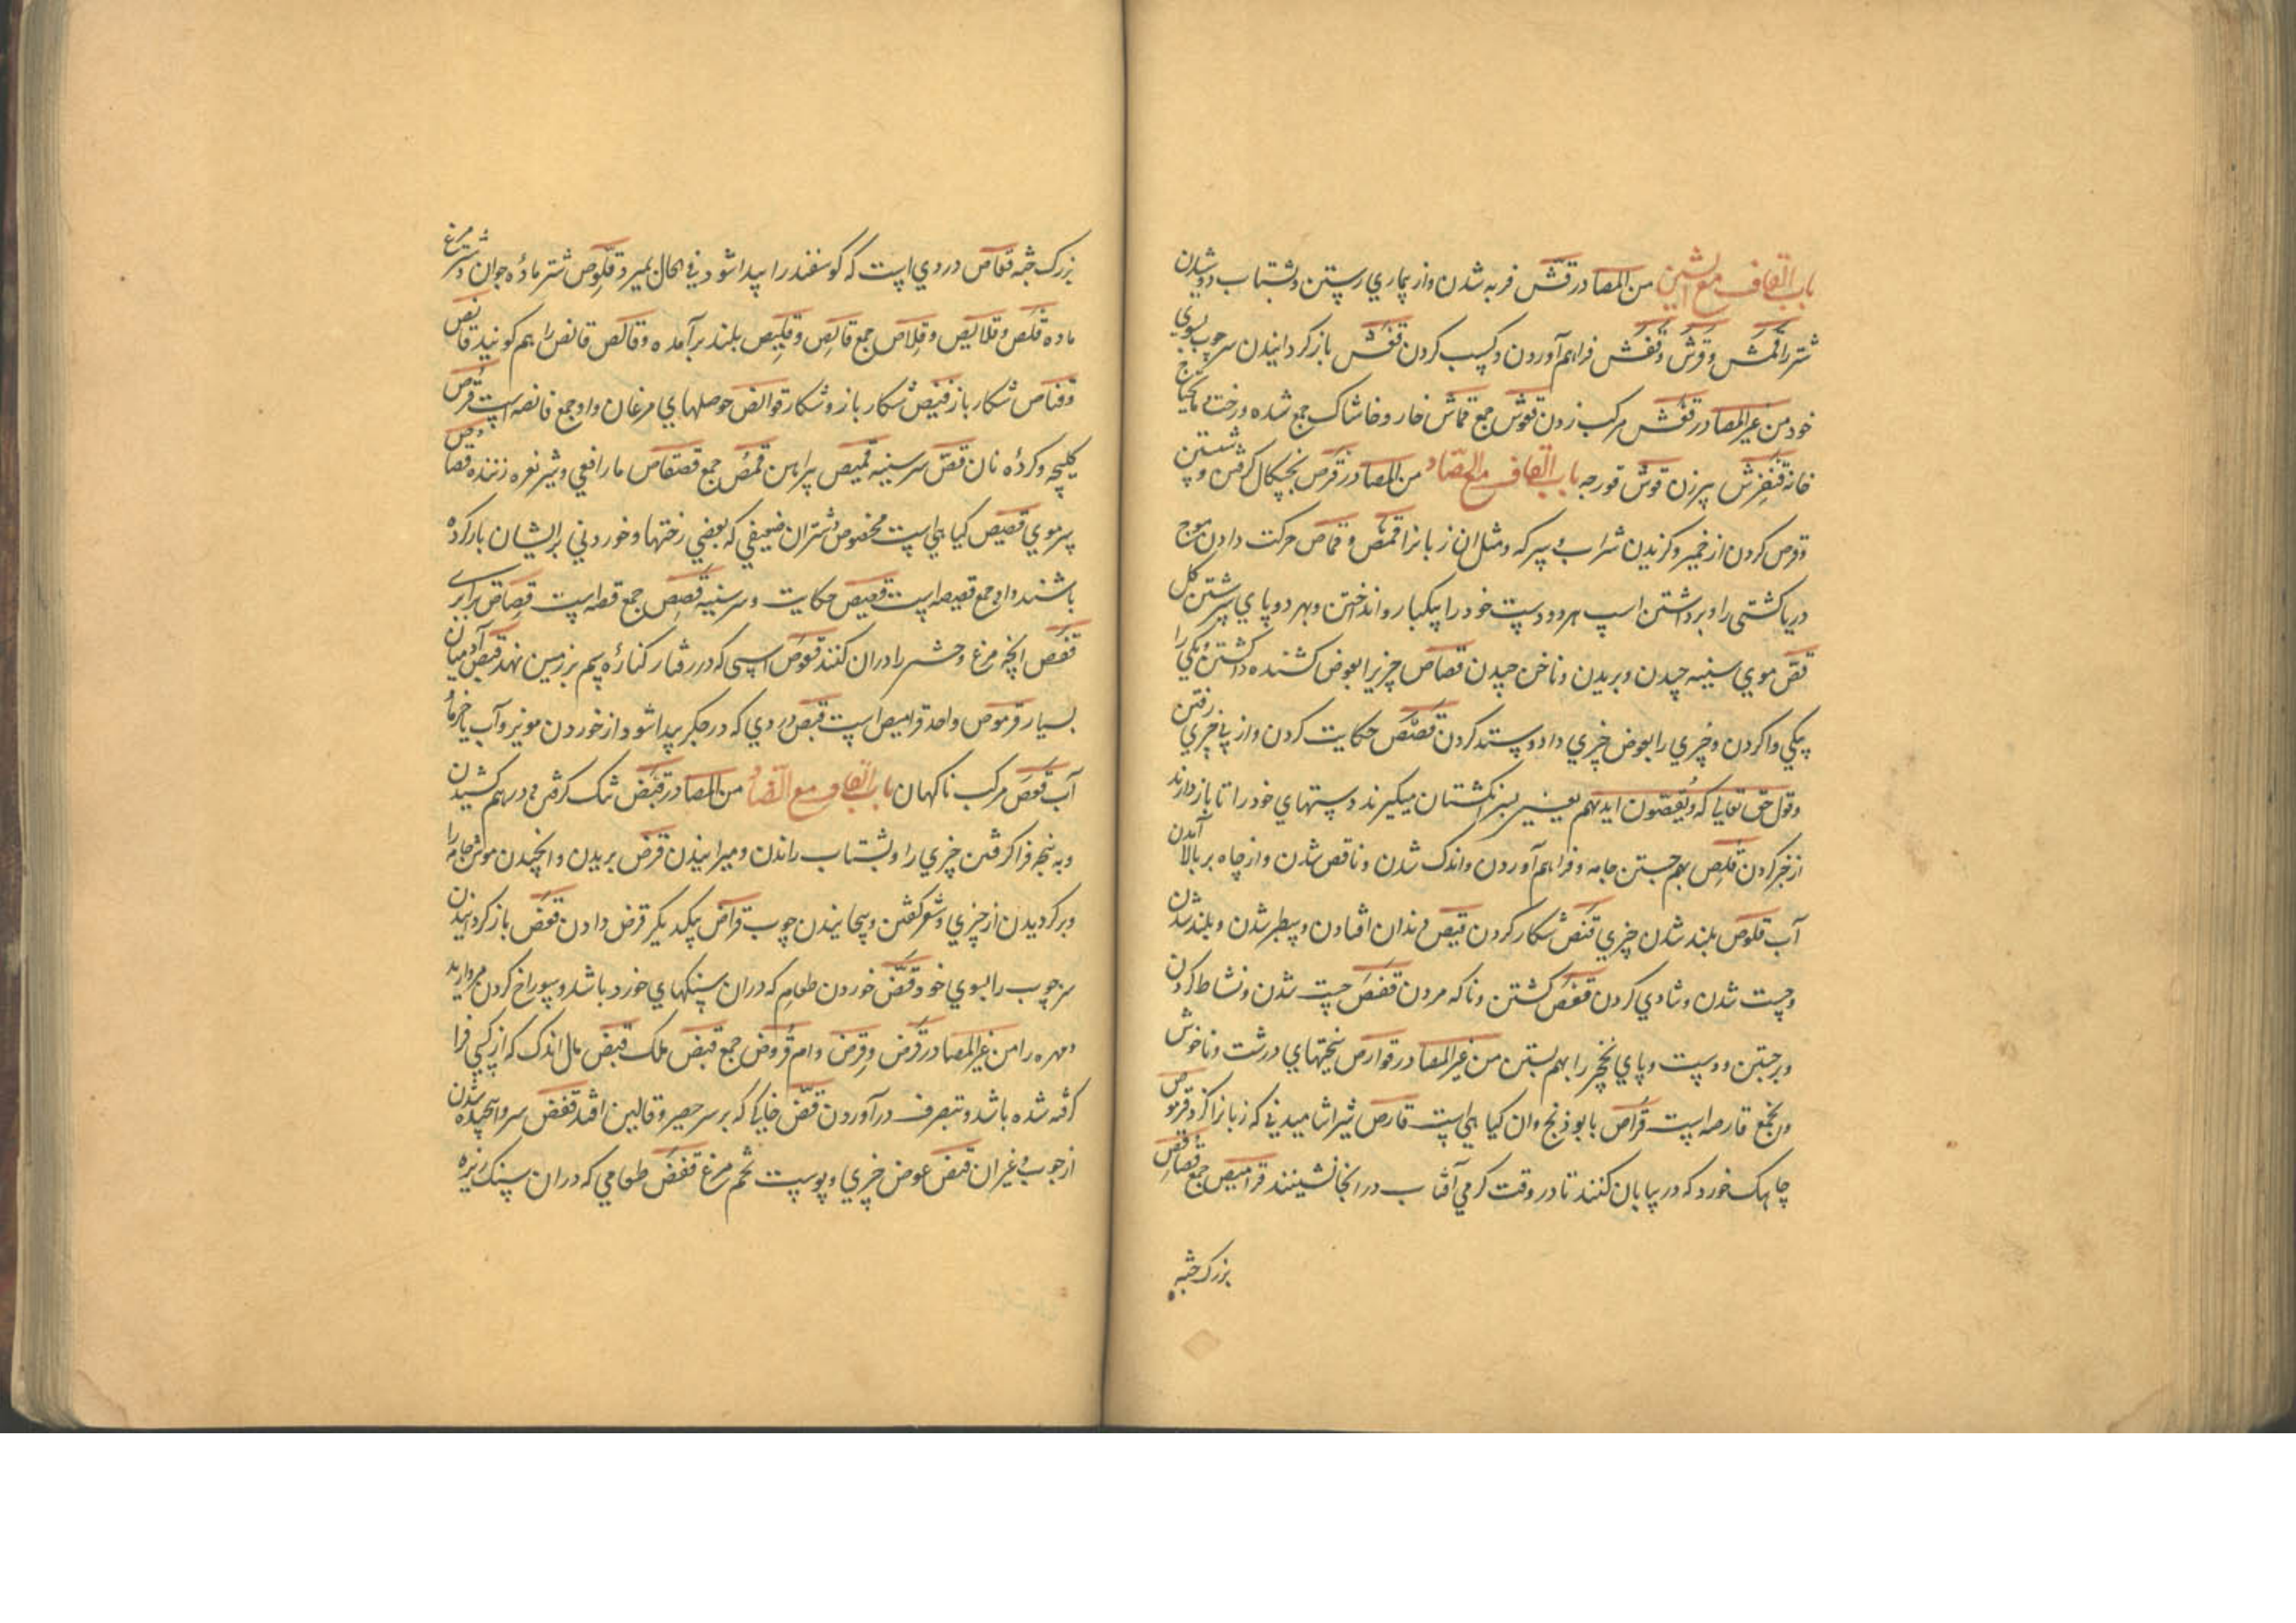 باب القاف مع الشين من المصادر قش فربه شدن واز بيماري رستن وبشتاب دويدن
شتر را قمش وقرش وقفش فراهم آوردن وكسب كردن قفش باز كردانيدن سر چوب بسوي
خود من غير المصادر قفش مركب زدن قموش جمع قماش خار وخاشاك جمع شده ورخت مايحتاج
خانه قنفرش پيرزن قوش قورجه باب القاف مع الصاد من المصادر قرص بچنكال كرفتن وشستن
وقرص كردن از خمير وكزيدن شراب وسركه ومثل ان زبانرا قمص وقماص حركت دادن موج
دريا كشتى را وبرداشتن اسپ هر دو دست خود را بيكبار وانداختن وبهر دو پاي سرشتن كل
قص موي سينه چيدن وبريدن وناخن چيدن قصاص چيزيرا بعوض كشنده داشتن ويكي را
بيكي واكردن وچيزي را بعوض چيزي داد وستد كردن قصص حكايت كردن واز پي چيزي رفتن
وقول حق تعالى كه ويقبضون ايديهم يعني بسر انكشتان ميكيرند دستهاي خود را تا باز دارند
از خير كردن قلص بهم جستن جامه وفراهم آوردن واندك شدن وناقص شدن واز چاه بر بالا آمدن
آب قلوص بلند شدن چيزي قنص شكار كردن قيص دندان افتادن وسطبر شدن وبلند شدن
وچست شدن وشادي كردن قعص كشتن وناكه مردن قفص چست شدن ونشاط كردن
وبرجستن ودست وپاي نخچير را بهم بستن من غير المصادر قوارص سختيهاي درشت وناخوش
واين جمع قارصه است قراص بابوذنج وان كياهي است قارص شير اشاميدني كه زبانرا كزد قرموص
چاهك خورد كه در بيابان كنند تا در وقت كرمي آفتاب در انجا نشينند قراميص جمع قصاقص
بزرك جثه
بزرك جثه قعاص دردي است كه كوسفند را پيدا شود في الحال بميرد قلوص شتر ماده جوان وشتر مرغ
ماده قلص وقلايص وقلاص جمع قالص وقليص بلند برآمده وقالص قانص را هم كويند قانص
وقناص شكار باز قنيص شكار باز وشكار قوانص حوصلهاي مرغان واو جمع قانصه است قرص
كليچه وكرده نان قص سر سينه قميص پيراهن قمص جمع قصقاص مار افعي وشير نعره زننده قصاص
پر موي قصيص كياهي است مخصوص شتران ضعيفي كه بعضي رختها وخوردني بر ايشان بار كرده
باشند واو جمع قصيصه است قصيص حكايت وسر سينه قصص جمع قصه است قصاص برابري
قفص انچه مرغ وحشى را در ان كنند قعوص اسپى كه در رفتار كناره سم بر زمين نهد قبص آدميان
بسيار قرموص واحد قراميص است قبص دردي كه در جكر پيدا شود از خوردن مويز وآب يا خرما
آب قعص مركب ناكهان باب القاف مع الضاد من المصادر قبض تنك كرفتن ودر هم كشيدن
وبه پنجه فرا كرفتن چيزي را وبشتاب راندن وميرانيدن قرض بريدن وانچيدن موش جامه را
وبركرديدن از چيزي وشعر كفتن وپيچانيدن چوب قراض بيكديكر قرض دادن قعض باز كردانيدن
سر چوب را بسوي خود قض خوردن طعام كه در ان سنكهاي خورد باشد وسوراخ كردن مرواريد
ومهره را من غير المصادر قرض وقرض وام قروض جمع قبض ملك قبض مال اندك كه از كسي فرا
كرفته شده باشد وبتصرف درآوردن قض خاكي كه بر سر حصير وقالين افتد قعض سر وا پيچيده شدن
از چوب وغير ان قيض عوض چيزي وپوست تخم مرغ قضض طعامي كه در ان سنك ريزه